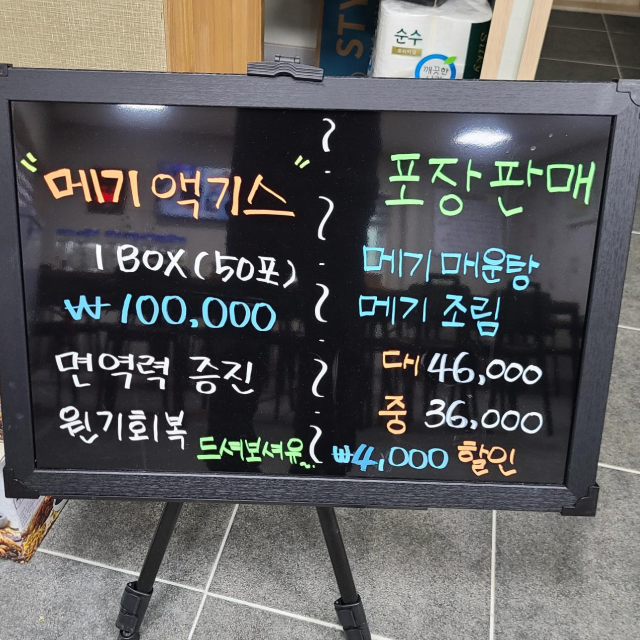 STY
순수
깨끗한
"메기 액기스"
1 BOX (50포)
₩ 100,000
면역력 증진
원기회복
드셔보셔유~
포장판매
메기 매운탕
메기 조림
대 46,000
중 36,000
₩4,000 할인